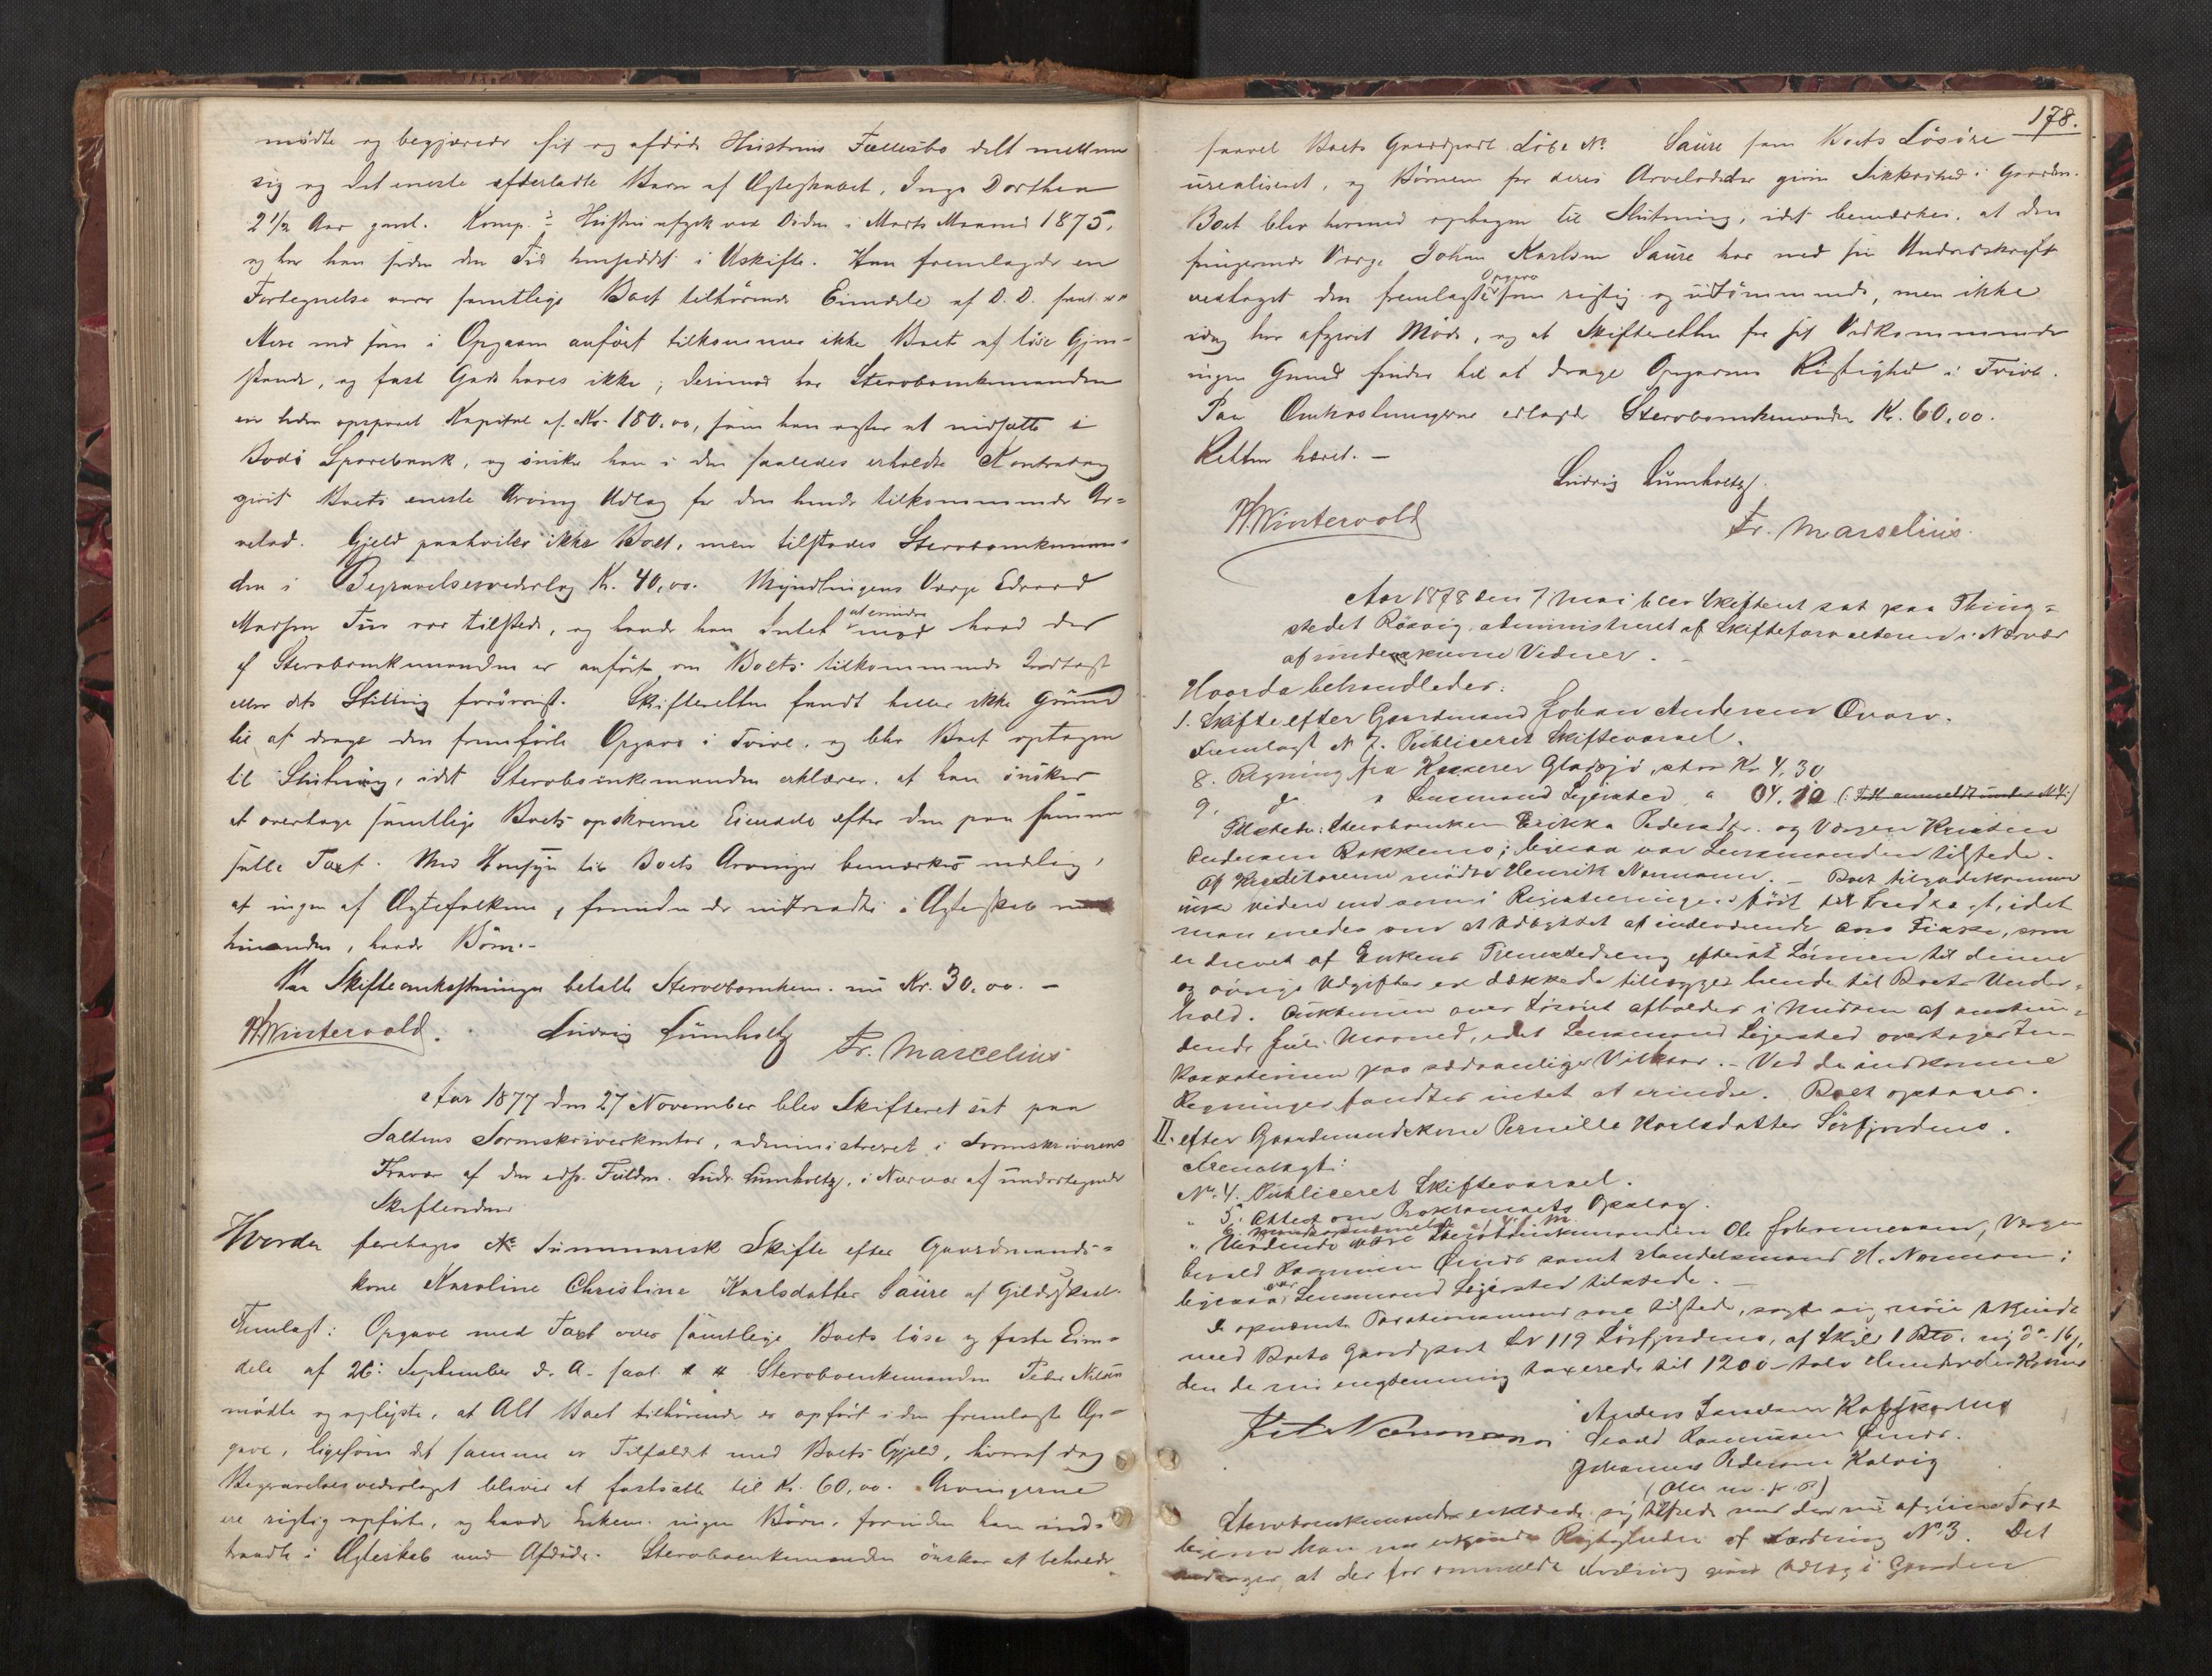 mödte og begjærede sit og afdöde Hustrues Fællesbo delt mellem
sig og det eneste efterladte Barn af Ægteskabet, Inga Dorthea
2 1/2 Aar gaml. Komp.s Hustru afgik ved Döden i Marts Maaned 1875,
og har han siden den Tid hensiddet i Uskifte. Han fremlagde en
Fortegnelse over samtlige Boet tilhörende Eiendele af D. D.
Mere end som i Opgaven anfört tilkommer ikke Boet af löse Gjen-
stande, og fast Gods haves ikke; derimod har Sterbboenkemanden
en liden opsparet Kapital af Kr. 180,00, som han agter at indsætte i
Bodö Sparebank, og önsker han i den saaledes erholdte Kontrabog
givet Boets eneste Arving Udlæg for den hende tilkommende Ar-
velod. Gjeld paahviler ikke Boet, men tilstodes Sterbboenkeman-
den i Begravelsesvederlag Kr. 40,00. Myndlingens Værge Edvard
Madsen var tilstede, og havde han Intet at erindre mod hvad der
af Sterbboenkemanden er anfört om Boets tilkommende Indtægt
eller dets Stilling forövrigt. Skifteretten fandt heller ikke Grund
til at drage den fremförte Opgave i Tvivl, og blev Boet optagen
til Slutning, idet Sterbboenkemanden erklærer, at han önsker
at overtage samtlige Boets opskrevne Eiendele efter den paa samme
satte Taxt. Med Hensyn til Boets Arvinger bemærkes nemlig,
at ingen af Ægtefolkene, forinden de indtraadte i Ægteskab med
hinanden, havde Börn.-
Paa Skifteomkostninger betalte Sterbboenkem. nu Kr. 30,00. -
H. Wintervold. Ludvig Lumholtz Fr. Marcelius
Aar 1877 den 27 November blev Skifteret sat paa
Saltens Sorenskriverkontor, administreret i Sorenskriverens
Fravær af den edsv. Fuldm. Ludv. Lumholtz, i Nærvær af undertegnede
Skiftevidner
Hvorda foretages Summarisk Skifte efter Gaardmands-
kone Karoline Christine Karlsdatter Saure af Gildeskaal.
Fremlagt: Opgave med Taxt over samtlige Boets löse og faste Eien-
dele af 26: September d. A. Sterbboenkemanden Peder Nilsen
mödte og oplyste, at Alt Boet tilhörende er opfört i den fremlagte Op-
gave, ligesom det samme er Tilfældet med Boets Gjeld, hvoraf dog
Begravelsesvederlaget bliver at fastsætte til Kr. 60,00. Arvingerne
ere rigtig opförte, og havde Enkem. ingen Börn, forinden han ind-
traadte i Ægteskab med Afdöde. Sterbboenkemanden önsker at beholde
178.
saavel Boets Gaardpart Löbe No Saure som Boets Lösöre
urealiseret, og Börnene for deres Arvelodder given Sikkerhed i Gaarden.
Boet blev hermed optagen til Slutning, idet bemærkes, at den
fungerende Værge Johan Karlsen Saure har med sin Underskrift
vedtaget den fremlagte Opgave som rigtig og udtömmende, men ikke
idag har afgivet Möde, og at Skifteretten for sit Vedkommende
ingen Grund finder til at drage Opgavens Rigtighed i Tvivl.
Paa Omkostningerne erlagde Sterbboenkemanden Kr. 60,00.
Retten hævet. -
Ludvig Lumholtz.
H. Wintervold
Fr. Marselius.
Aar 1878 den 7 Mai blev Skifteret sat paa Thing-
stedet Rösvig administreret af Skifteforvalteren i Nærvær
af underskrevne Vidner.
Hvorda behandledes:
1. Skifte efter Gaardmand Johan Andersen Qvarv.
Fremlagt N 7. Publiceret Skiftevarsel.
8. Regning fra Kasserer Gladsjö, stor Kr 4,30
9. do. " Lensmand Lejersted " 04,10 (: :)
Tilstede: Sterbboenken Erikka Pedersdtr. og Værgen Kristen
Andersen Bakkemo; ligesaa var Lensmanden tilstede.
Af Kreditorerne mödte Henrik Normann. - Boet tilgodekommer
ikke videre end som i Registreringen fört til Indtægt, idet
man enedes om at Udbyttet af inderværende Aars Fiske, som
er drevet af Enkens Tjenestedreng efterat Lönnen til denne
og övrige Udgifter er dækkede tillægges hende til Boets Under-
hold. Auktionen over Lösöret afholdes i Midten af anstun-
dende Juli Maaned, idet Lensmand Lejersted overtager In-
kassationen paa sædvanlige Vilkaar. - Ved de indkomne
Regninger fandtes intet at erindre. Boet optages.
II. efter Gaardmandskone Pernille Karlsdatter Sörfjordmo.
Fremlagt:
No. 4. Publiceret Skiftevarsel.
" 5. Attest om Proklamaets Opslag.
" 6. Mandsopnævnelse af
Mödende vare Sterbboenkemanden Ole Johannessen, Værgen
Sivald Rasmussen samt Handelsmand H. Normann;
ligesaa var Lensmand Lejersted tilstede. -
De opnævnte Taxationsmænd vare tilstede, sagde sig nöie bekjendt
med Boets Gaardpart Lv 119 Sörfjordmo, af Skyld 1 nij d- 16,
den de nu eragtning taxerede til 1200 - tolv Hundrede Kroner
Anders
H. Normann Sivald Rasmussen
Johannes Pedersen Kalvig
(Alle m. f. P.)
Sterbboenkemanden erklærede sig tilfreds med den nu afgivne Taxt
ligesom han nu erkjendte Rigtigheden af Fordring No 3. Det
at der for anmeldte Fordring gives Udlæg i Gaarden